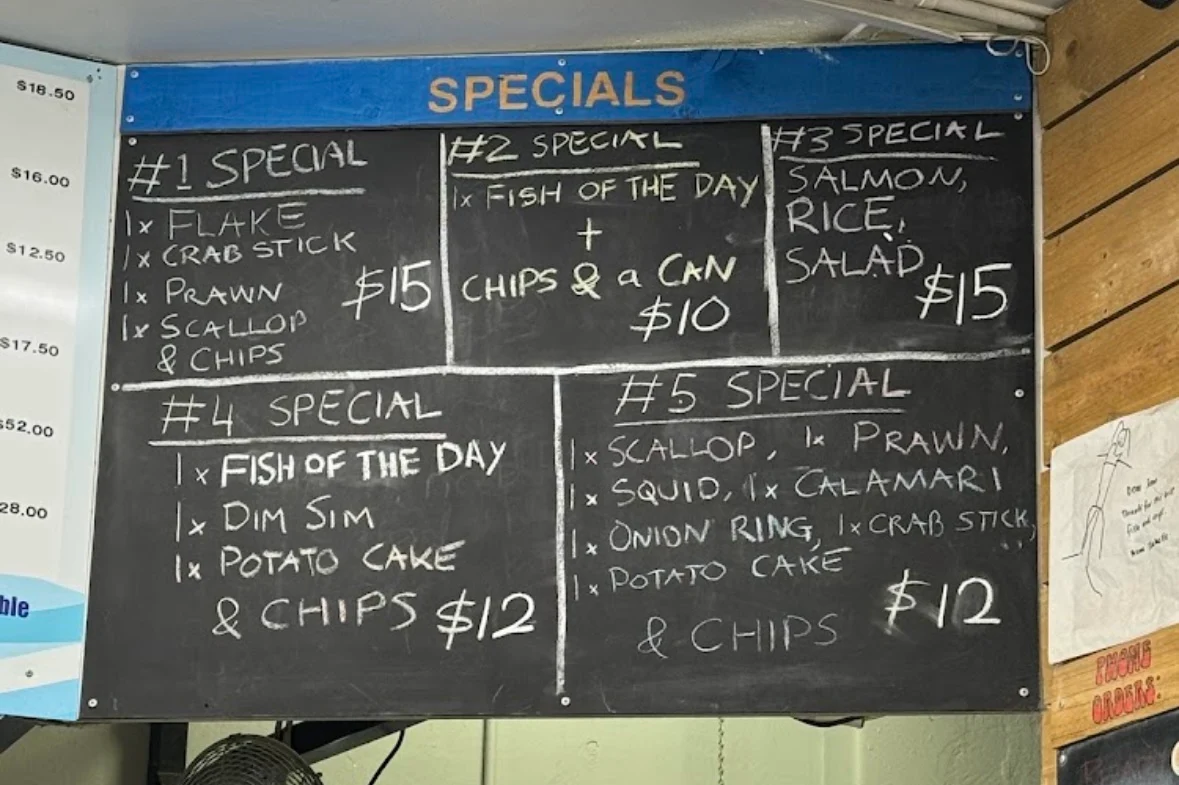 SPECIALS
#1 SPECIAL
1x FLAKE
1x CRAB STICK
1x PRAWN
1x SCALLOP
& CHIPS
$15
#2 SPECIAL
1x FISH OF THE DAY
+
CHIPS & a CAN
$10
#3 SPECIAL
SALMON,
RICE,
SALAD
$15
#4 SPECIAL
1x FISH OF THE DAY
1x DIM SIM
1x POTATO CAKE
& CHIPS $12
#5 SPECIAL
1x SCALLOP, 1x PRAWN,
1x SQUID, 1x CALAMARI
1x ONION RING, 1x CRAB STICK,
1x POTATO CAKE
& CHIPS
$12
$18.50
$16.00
$12.50
$17.50
$52.00
28.00
ble
PHONE
ORDERS: